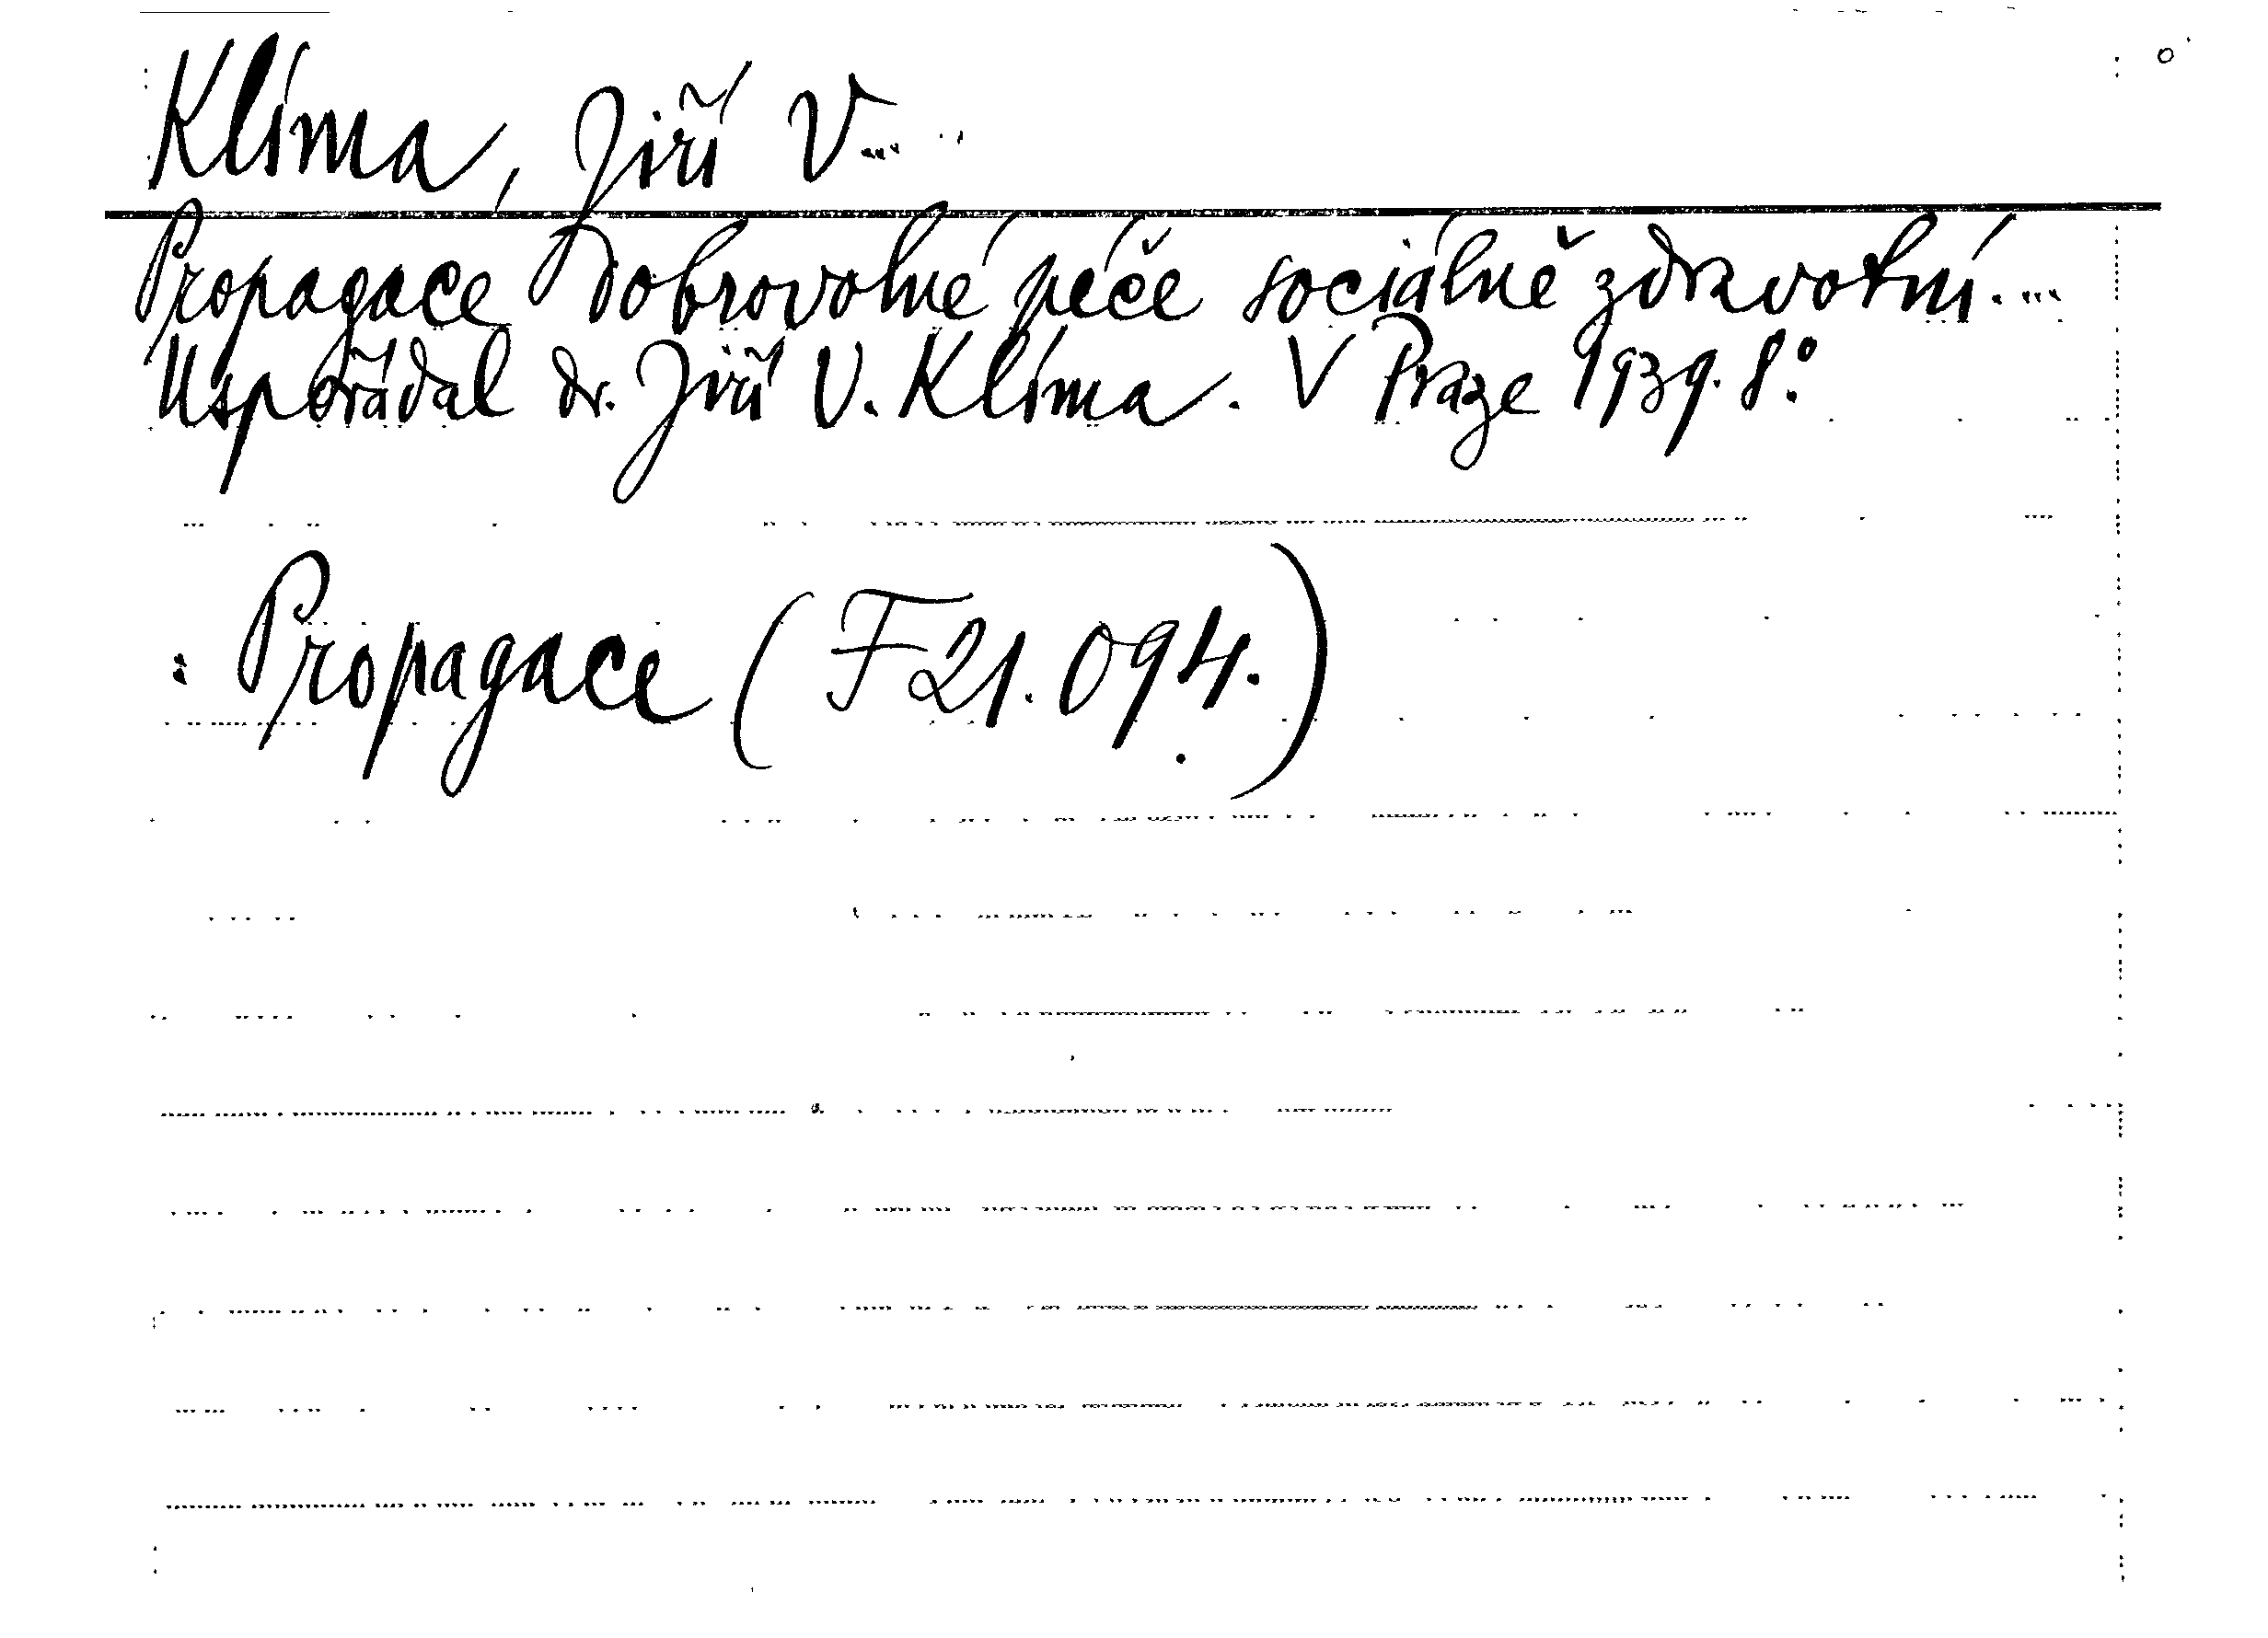 Klíma, Jiří V...
Propagace dobrovolné péče sociálně zdravotní...
Uspořádal dr. Jiří V. Klíma. V Praze 1939. 8°.
: Propagace (F 21.094.)